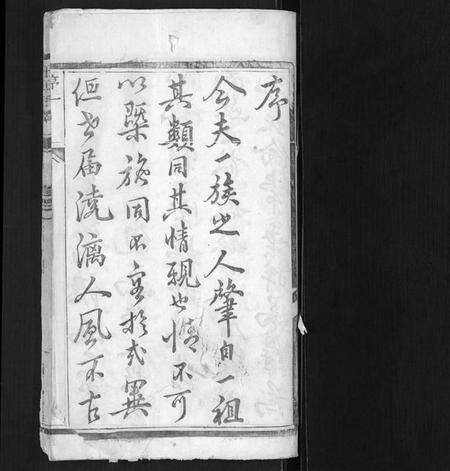 序
今夫一族之人肇自一祖
其類同其情親也情不可
以槩施同不容於或異
但世屆澆漓人風不古
序一